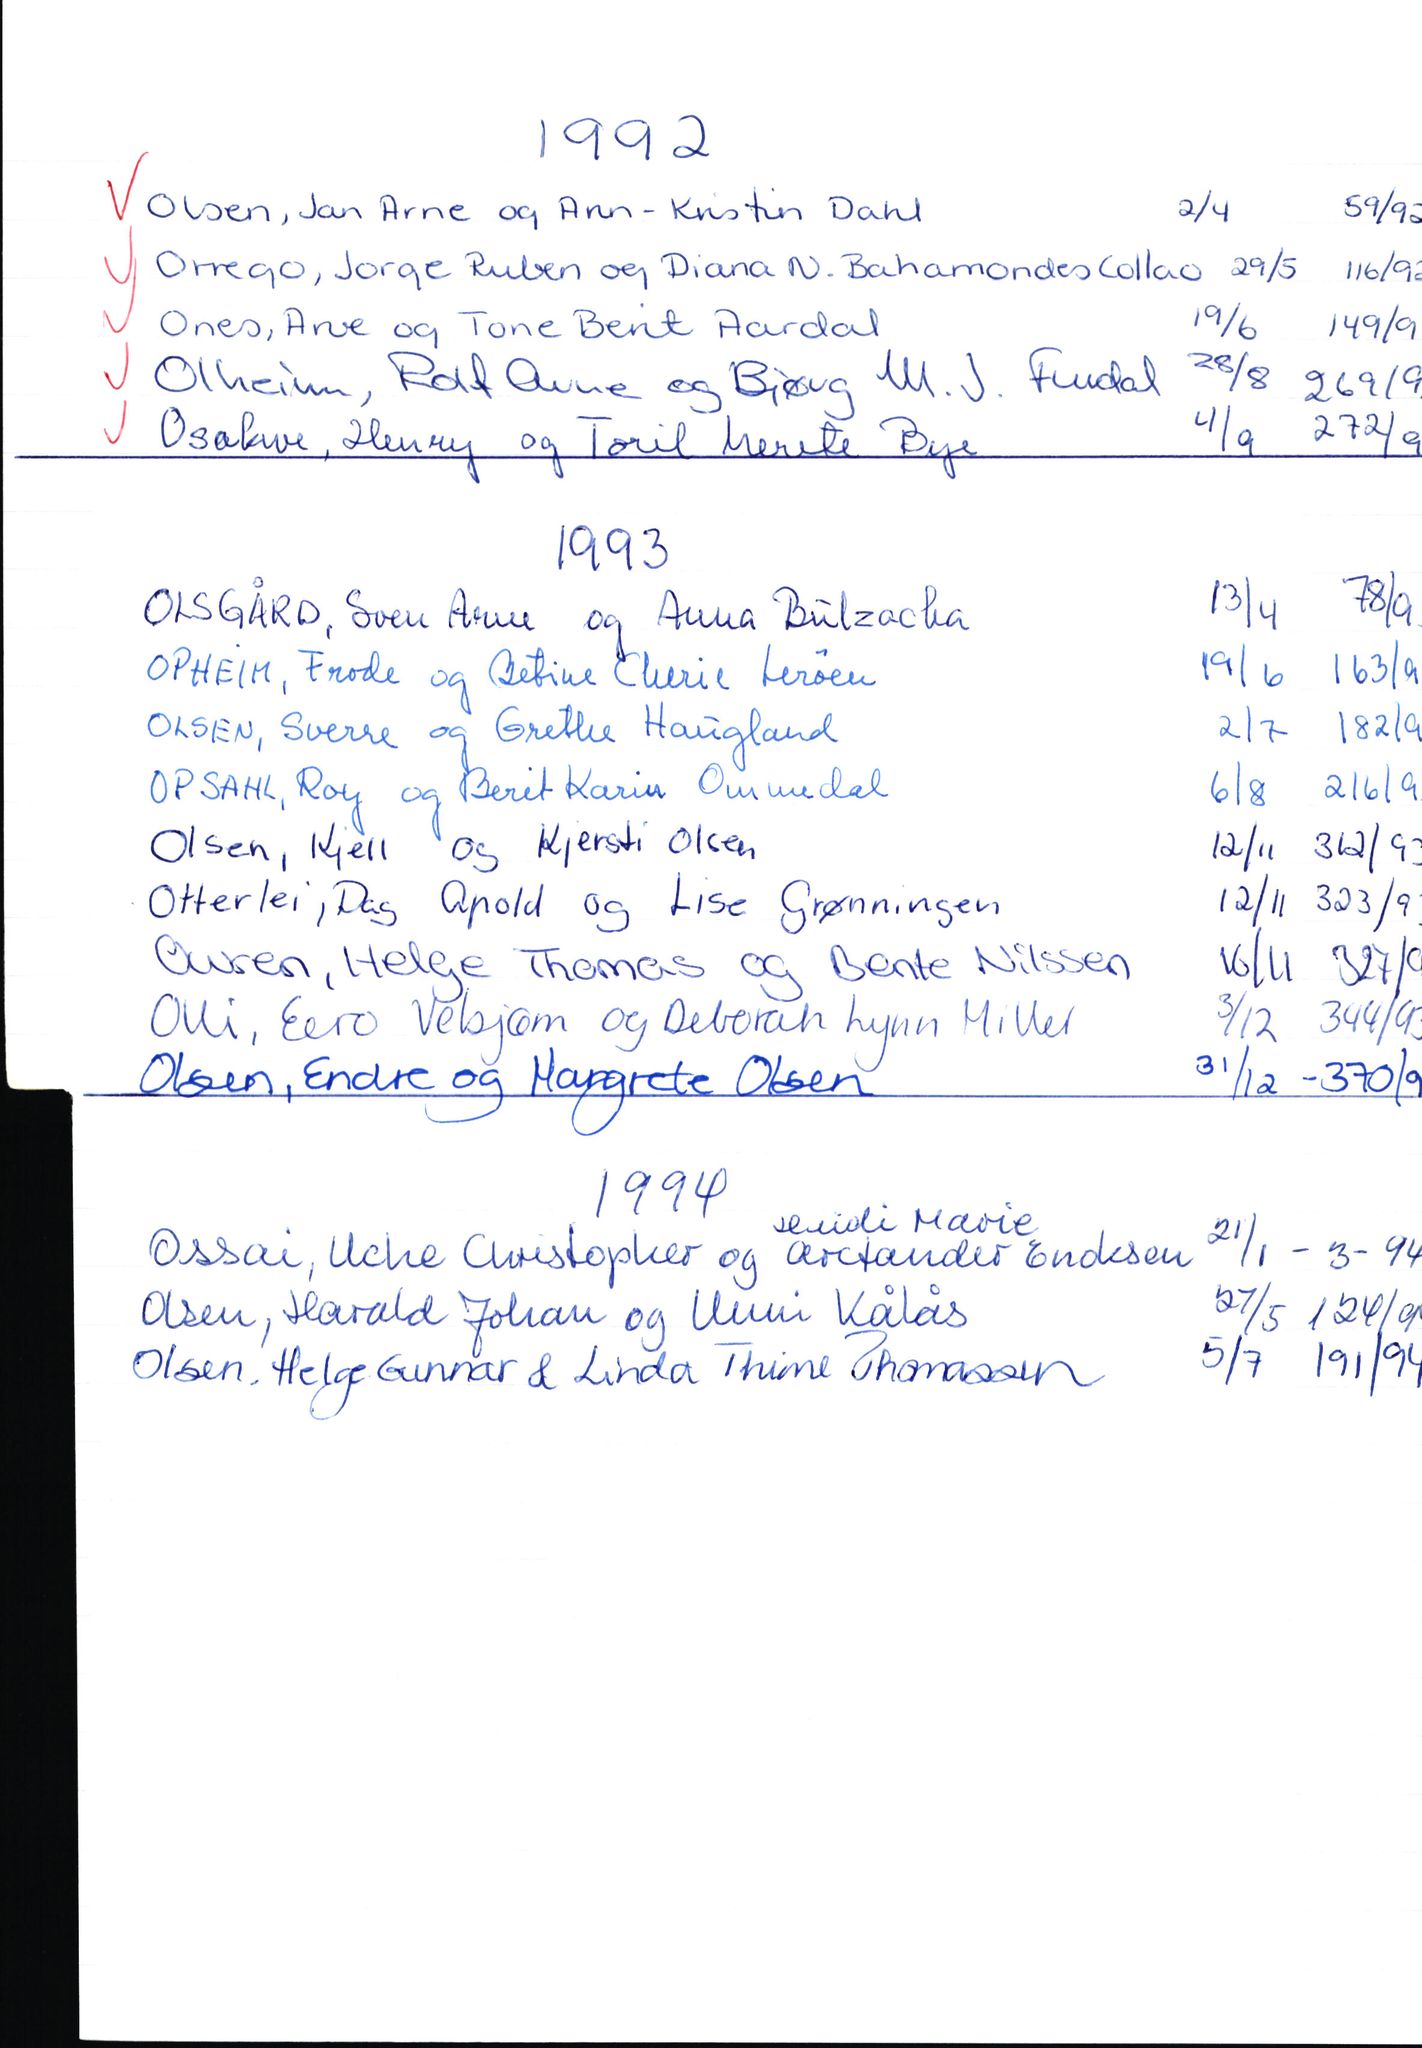 1992
Olsen, Jan Arne og Ann-Kristin Dahl 2/4 59/92
Orrego, Jorge Ruben og Diana N. Bahamondes Collao 29/5 116/92
Ones, Arve og Tone Berit Aardal 19/6 149/9
Olheim, Rolf Arne og Bjørg M. J. Furdal 28/8 269/9
Osakwe, Henry og Toril Merete Bye 4/9 272/9
1993
OLSGÅRD, Sven Arne og Anna Bulzacka 13/4 78/9
OPHEIM, Frode og Betine Cherie Leröen 19/6 163/9
OLSEN, Sverre og Grethe Haugland 2/7 182/9
OPSAHL, Roy og Berit Karin Ommedal 6/8 216/9
Olsen, Kjell og Kjersti Olsen 12/11 312/93
Otterlei, Dag Apold og Lise Grønningen 12/11 323/93
Ouren, Helge Thomas og Bente Nilssen 16/11 327/9
Olli, Eero Vebjørn og Deborah Lynn Miller 3/12 344/93
Olsen, Endre og Margrete Olsen 31/12 - 370/9
1994
Heidi Marie
Ossai, Uche Christopher og Arctander Endksen 21/1 - 3 - 94
Olsen, Harald Johan og Unni Kålås 27/5 124/94
Olsen. Helge Gunnar & Linda Thime Thomassen 5/7 191/94